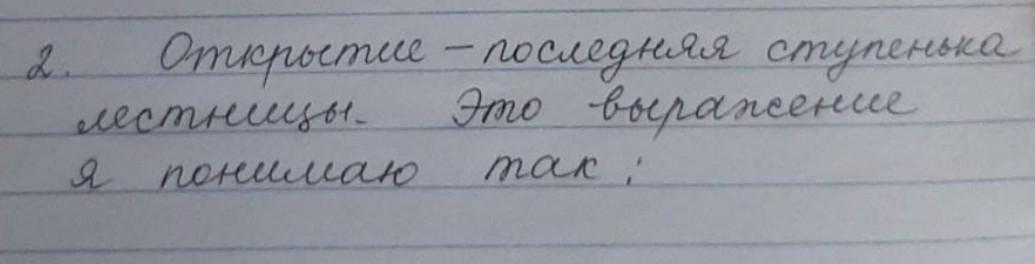 2. Открытие – последняя ступенька
лестницы. Это выражение
я понимаю так: